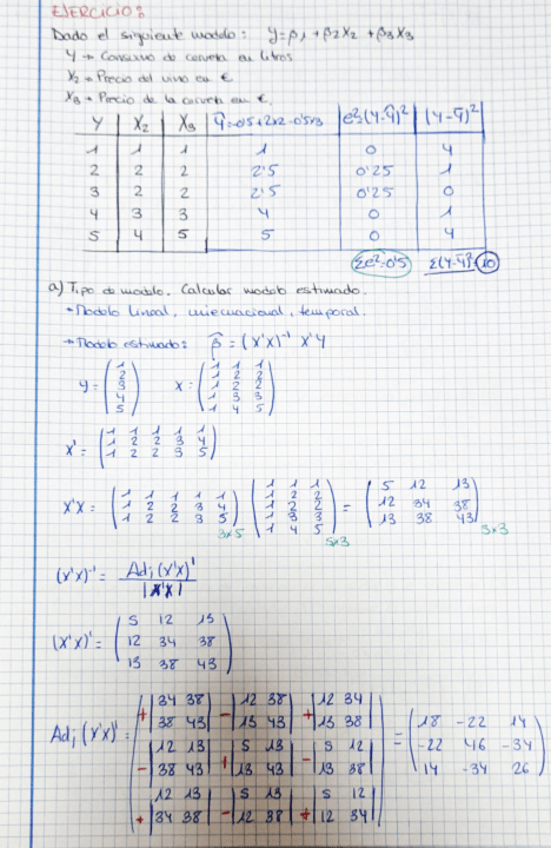 EJERCICIO 8
Dado el siguiente modelo: Y=β1+β2X2+β3X3
Y → Consumo de cerveza en litros
X2 → Precio del vino en €
X3 → Precio de la cerveza en €.
Y X2 X3 Ŷ=-0'5+2x2-0'5x3 e²=(Y-Ŷ)² (Y-Ȳ)²
1 1 1 1 0 4
2 2 2 2'5 0'25 1
3 2 2 2'5 0'25 0
4 3 3 4 0 1
5 4 5 5 0 4
Σe²=0'5 Σ(Y-Ȳ)²=10
a) Tipo de modelo. Calcular modelo estimado.
• Modelo lineal, uniecuacional, temporal.
→ Modelo estimado: β̂ = (X'X)⁻¹ X'Y
Y = (1 2 3 4 5) X = (1 1 1
1 2 2
1 2 2
1 3 3
1 4 5)
X' = (1 1 1 1 1
1 2 2 3 4
1 2 2 3 5)
X'X = (1 1 1 1 1 (1 1 1 (5 12 13
1 2 2 3 4 1 2 2 12 34 38
1 2 2 3 5) 1 2 2 = 13 38 43)
3x5 1 3 3 3x3
1 4 5)
5x3
(X'X)⁻¹ = Adj (X'X)'
|X'X|
(X'X)' = (5 12 13
12 34 38
13 38 43)
Adj (X'X)' = +|34 38| -|12 38| +|12 34| = (18 -22 14
|38 43| |13 43| |13 38| -22 46 -34
-|12 13| +|5 13| -|5 12| 14 -34 26)
|38 43| |13 43| |13 38|
+|12 13| -|5 13| +|5 12|
|34 38| |12 38| |12 34|